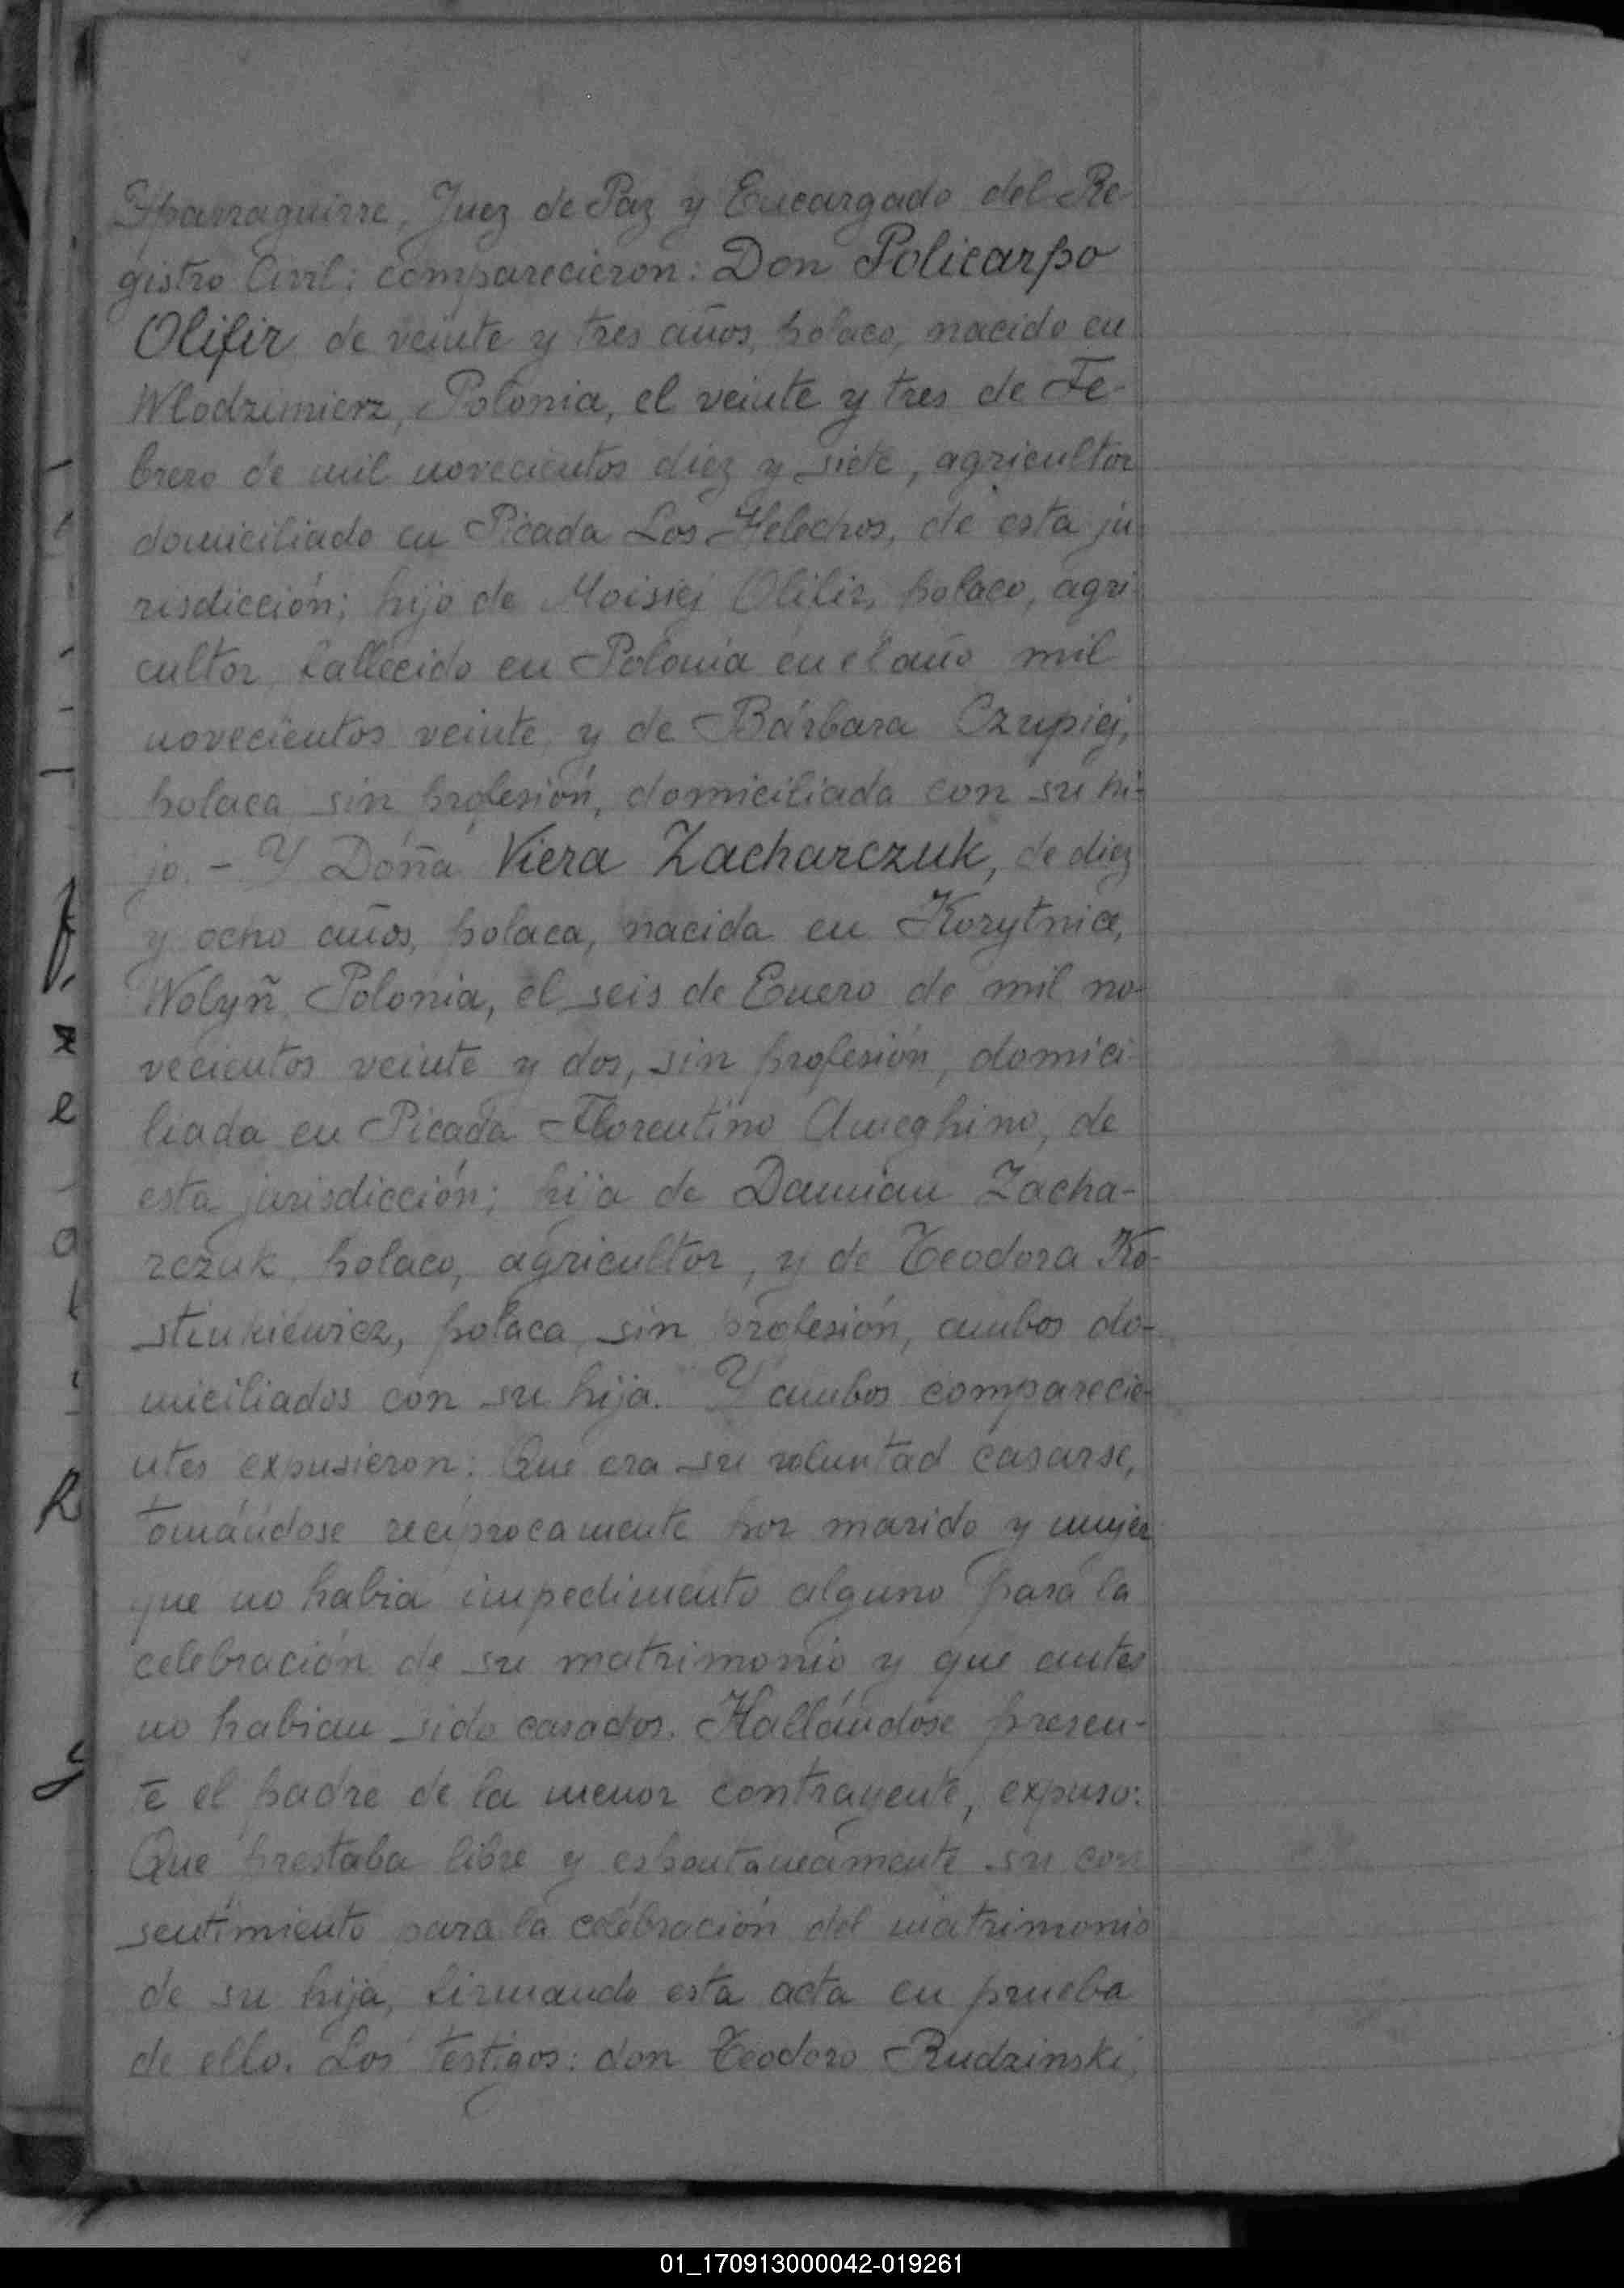 Ypparraguirre, Juez de Paz y Encargado del Re-
gistro Civil; comparecieron: Don Policarpo
Olifir de veinte y tres años, polaco, nacido en
Wlodzimierz, Polonia, el veinte y tres de Fe-
brero de mil novecientos diez y siete, agricultor
domiciliado en Picada Los Helechos, de esta ju-
risdicción; hijo de Moisiej Olifir, polaco, agri-
cultor, fallecido en Polonia en el año mil
novecientos veinte, y de Bárbara Czupiej,
polaca, sin profesión, domiciliada con su hi-
jo. - Y Doña Viera Zacharczuk, de diez
y ocho años, polaca, nacida en Korytnice,
Wolyñ, Polonia, el seis de Enero de mil no-
vecientos veinte y dos, sin profesión, domici-
liada en Picada Florentino Ameghino, de
esta jurisdicción; hija de Damian Zacha-
rczuk, polaco, agricultor, y de Teodora Ko-
stinkiewicz, polaca, sin profesión, ambos do-
miciliados con su hija. Y ambos comparecie-
ntes expusieron: Que era su voluntad casarse,
tomándose recíprocamente por marido y mujer
que no habia impedimento alguno para la
celebración de su matrimonio y que antes
no habian sido casados. Hallándose presen-
te el padre de la menor contrayente, expuso:
Que prestaba libre y espontaneamente su con
sentimiento para la celebración del matrimonio
de su hija, firmando esta acta en prueba
de ello. Los testigos: don Teodoro Rudzinski,
01_170913000042-019261